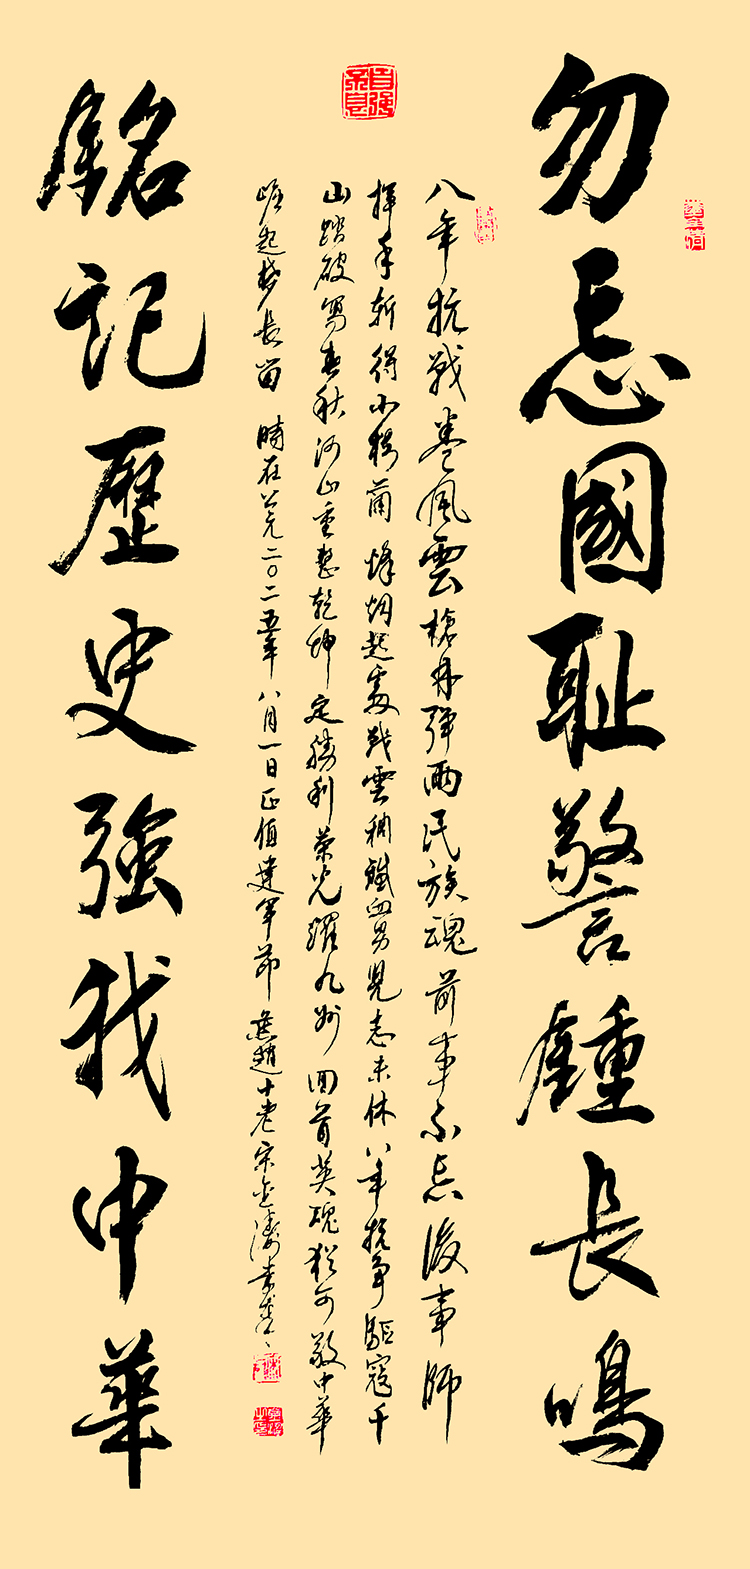 自强不息
勿忘國耻警鍾長鳴
八年抗戰卷風雲槍林彈雨民族魂前事不忘後事師
揮手斬得小烽烟起處戰雲稠鐵血男兒志未休八年抗争驅寇千
山踏破寫春秋河山重整乾坤定勝利榮光耀九州回首英魂猶可敬中華
崛起夢長留時在公元二〇二五年八月一日正值建軍節燕趙十老宋金濤書
銘記歷史強我中華